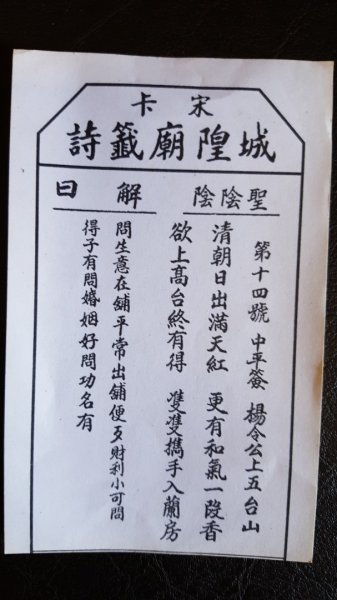 宋卡
城隍廟籤詩
聖陰陰
第十四號 中平簽 楊令公上五台山
清朝日出滿天紅 更有和氣一段香
欲上高台終有得 雙雙攜手入蘭房
解曰
問生意在舖平常出舖便歹財利小可問
得子有問婚姻好問功名有